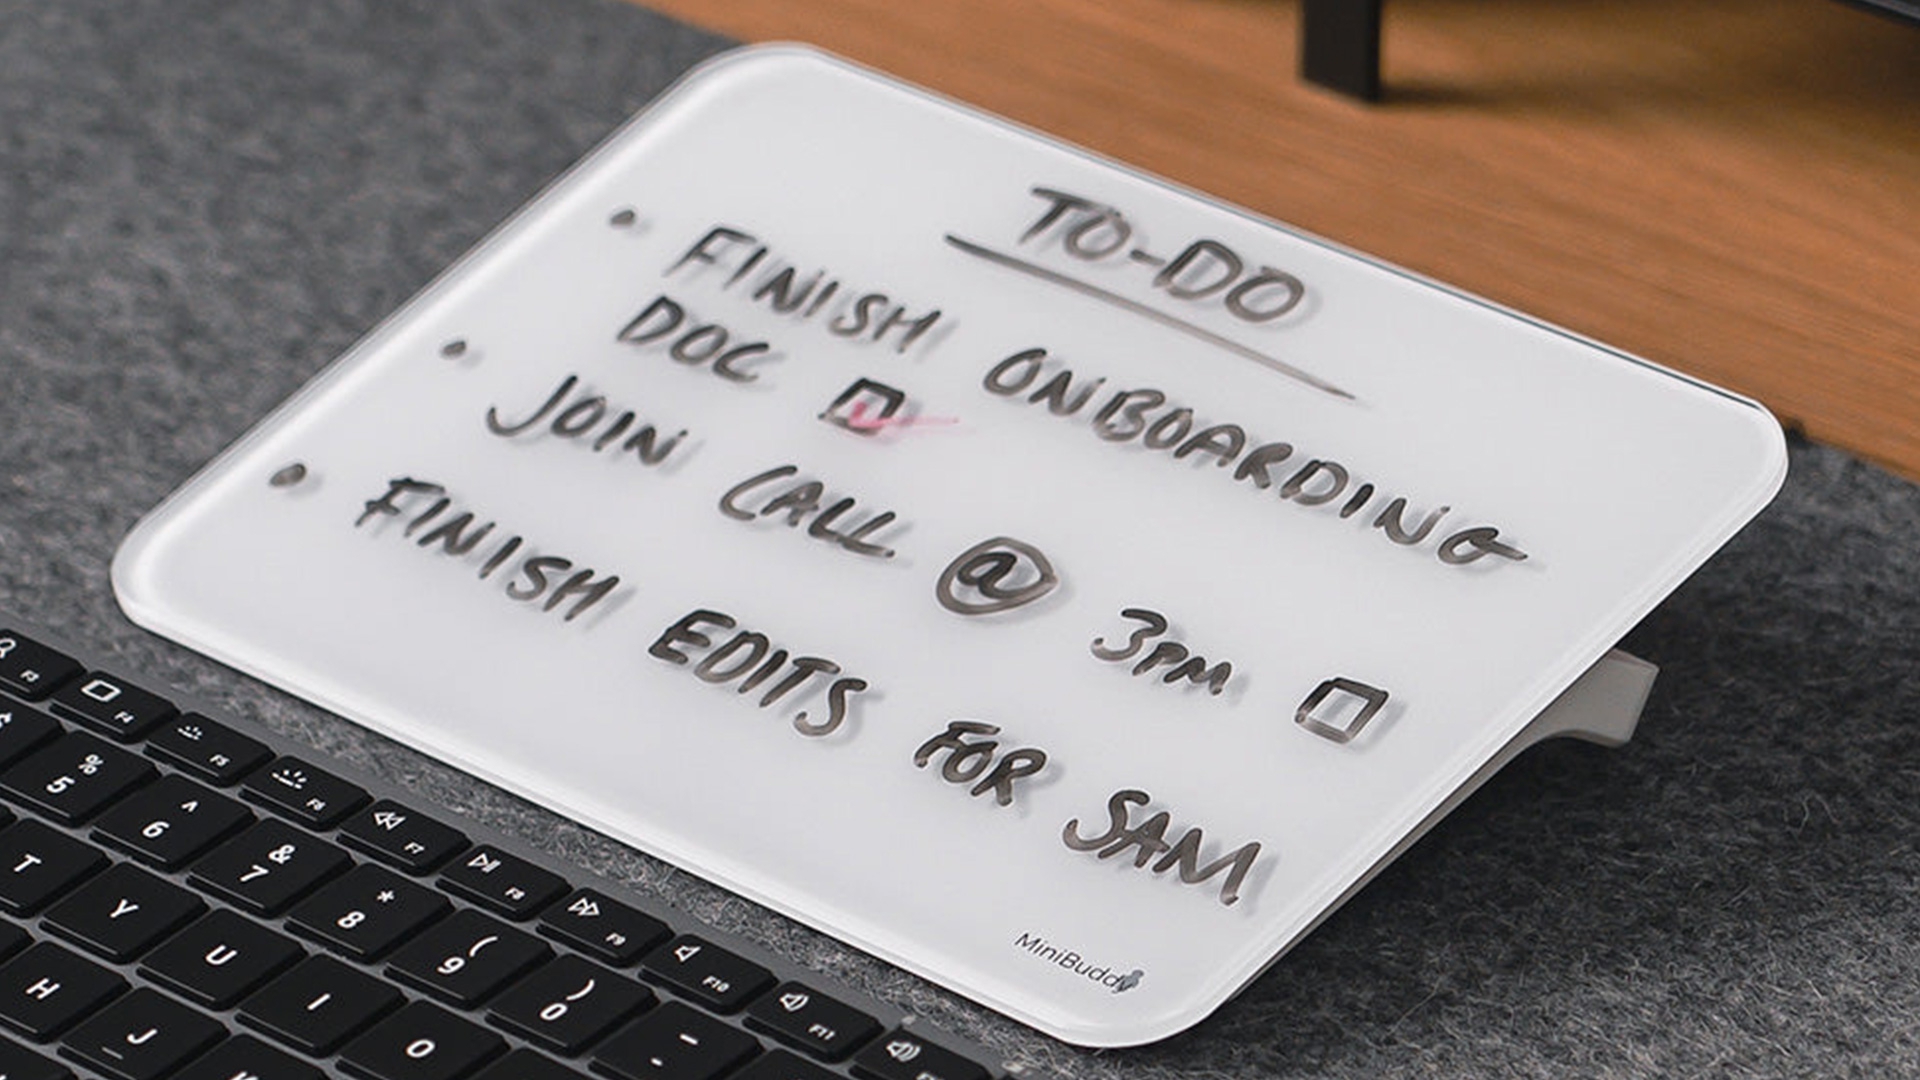 TO-DO
• FINISH ONBOARDING
DOC ☑
• JOIN CALL @ 3PM ☐
• FINISH EDITS FOR SAM
MiniBuddy
F3
F4
F5
F6
F7
F8
F9
F10
F11
$
% 5
^ 6
& 7
* 8
( 9
) 0
_ -
T Y U I O
H J